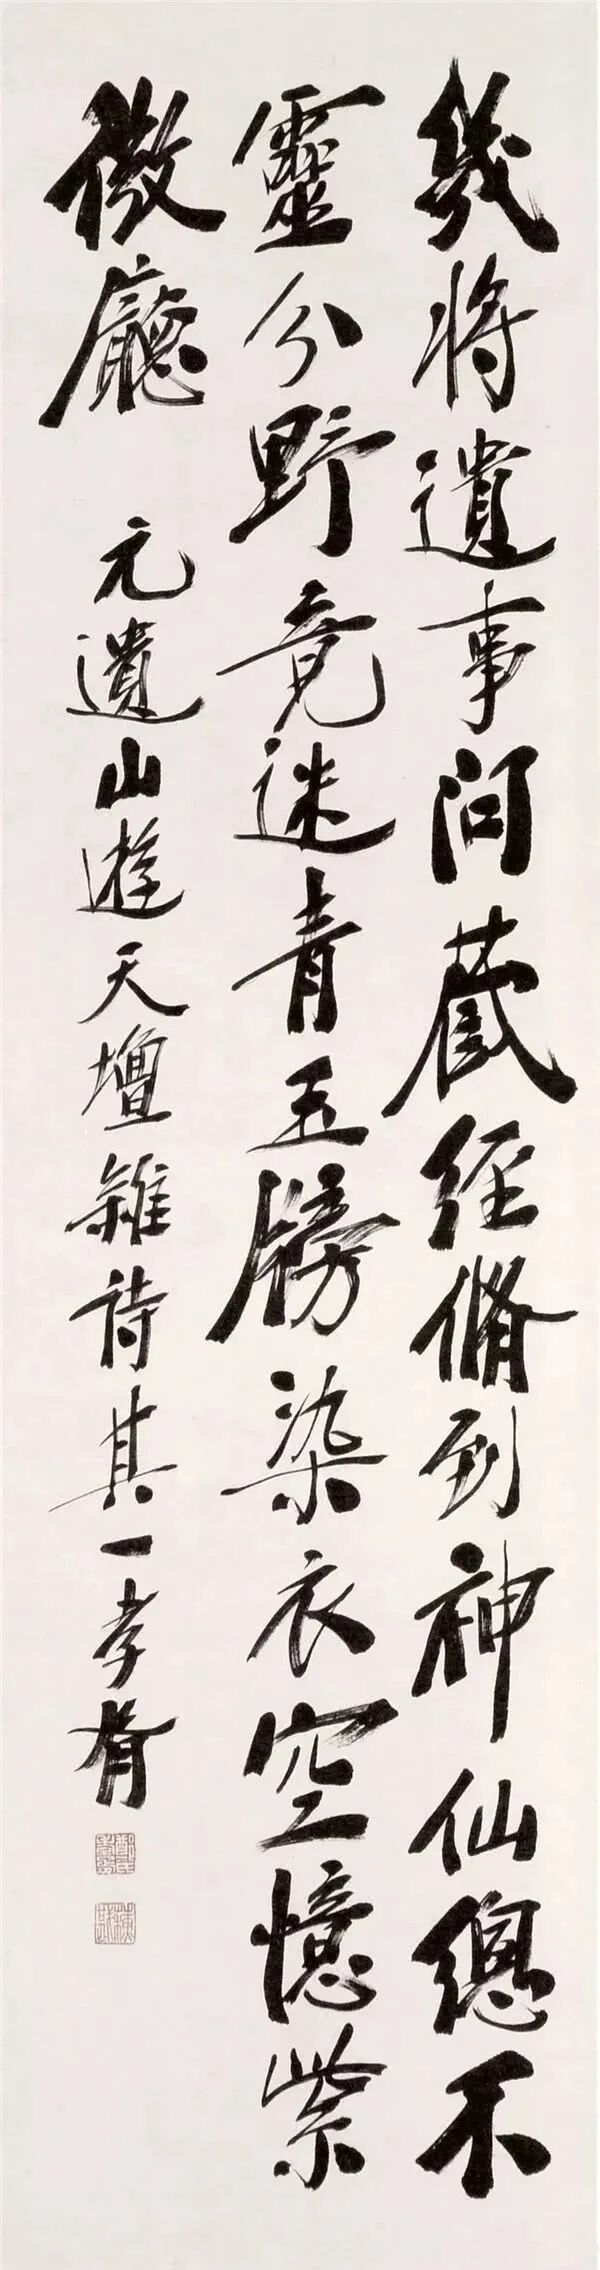 幾将遺事問蔵經脩到神仙總不
靈分野竟迷青玉牓染衣空憶紫
微廳
元遺山遊天壇雜詩其一孝胥